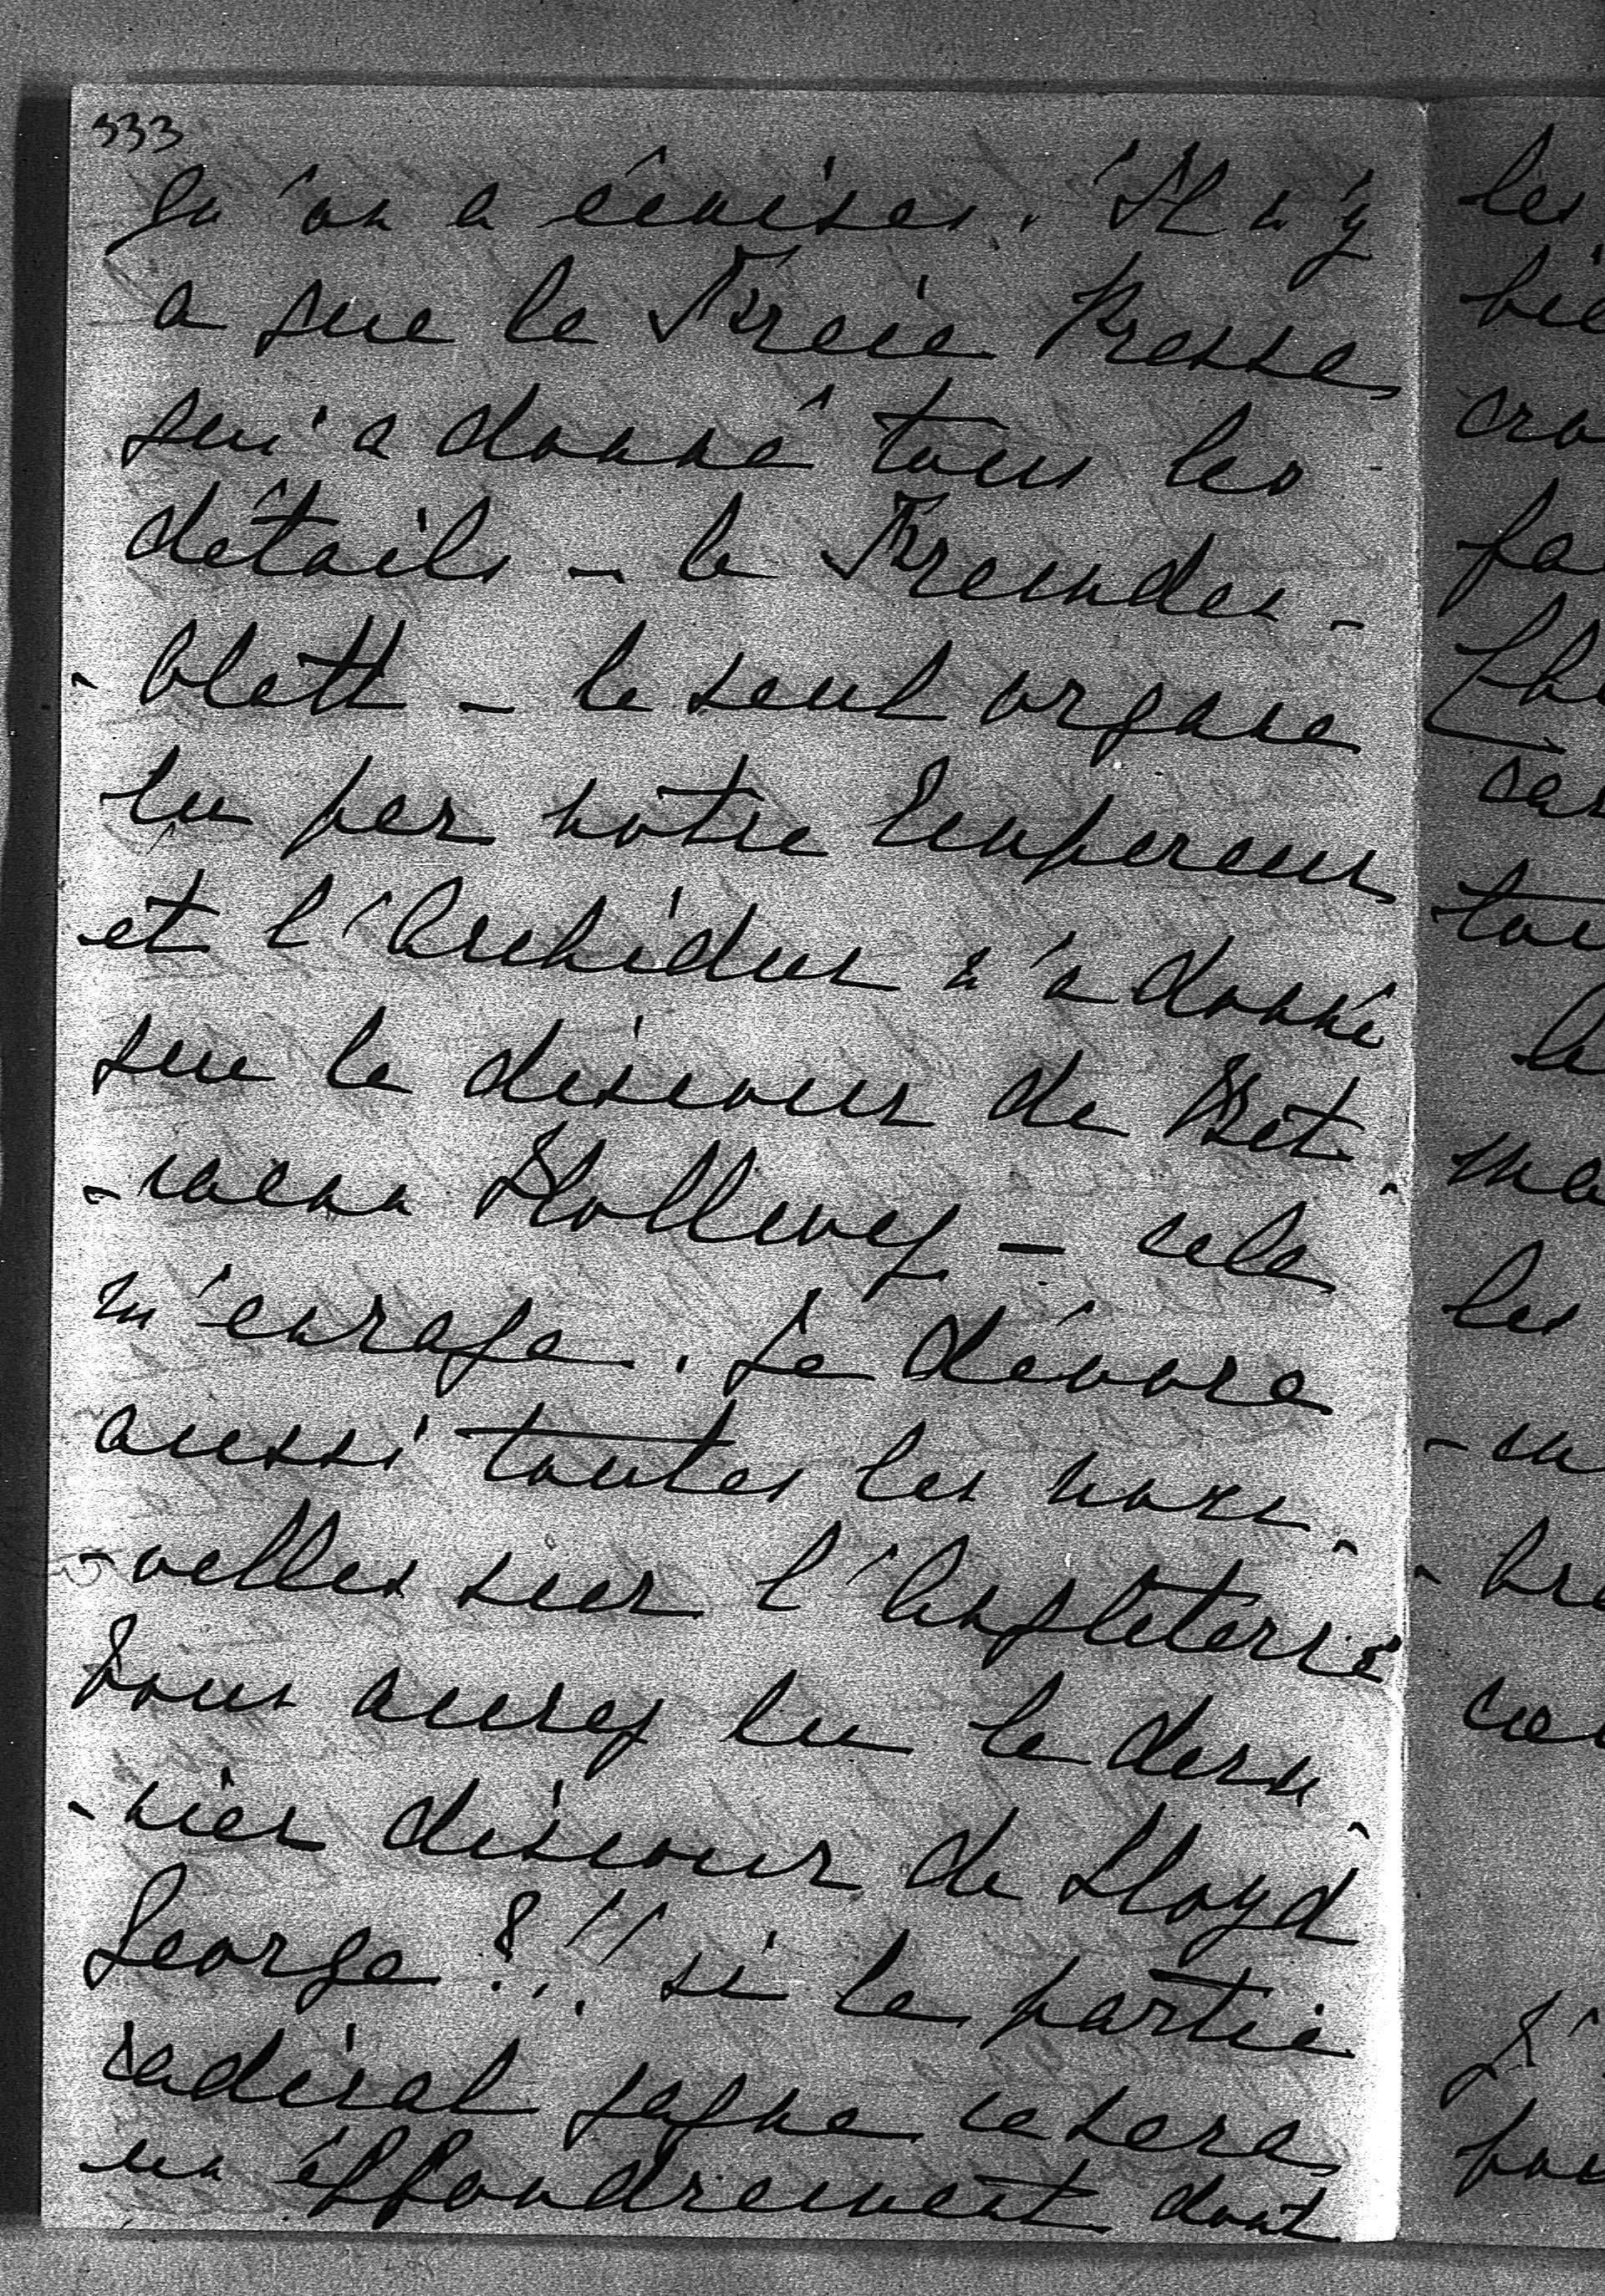 333
qu'on a évisés. Il n'y
a que la Freie Presse
qui a donné tous les
détails – le Fremden-
-blatt – le seul organe
lu par notre Empereur
et l'Archiduc n'a donné
que le discours de Bet-
-mann Hollweg – cela
m'enrage. Je dévore
aussi toutes les nou-
-velles sur l'Angleterre
Vous aurez lu le dern-
-nier discour de Lloyd
George?!! si la partie
radical gagne ce sera
un éffondrement dont